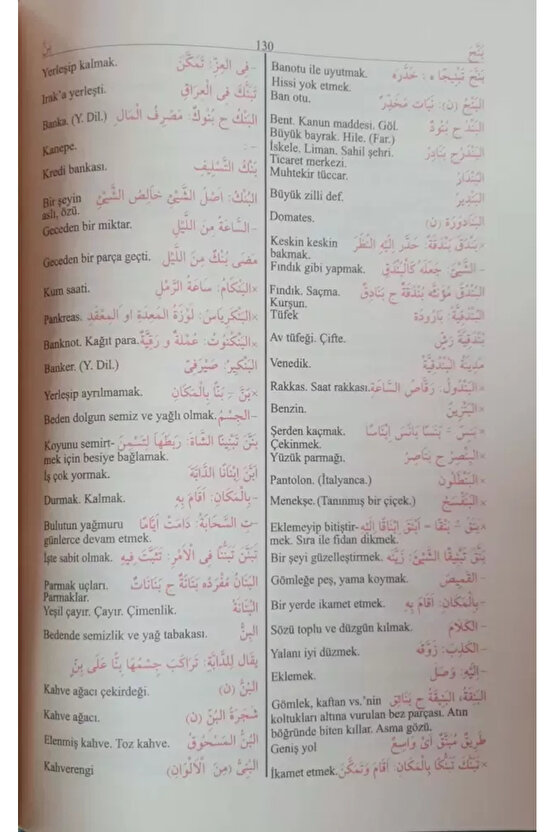 بَنَّجَ
130
بَنَّ
بَنَّجَ تَبْنِيجًا ه : خَدَّرَه Banotu ile uyutmak.
Hissi yok etmek.
البَنْجُ (ن): نَبَات مُخَدِّرٌ Ban otu.
البَنْد ج بُنُودٌ Bent. Kanun maddesi. Göl.
Büyük bayrak. Hile. (Far.)
البَنْدَرُ ج بَنَادِرُ İskele. Liman. Sahil şehri.
Ticaret merkezi.
البُنْدَارُ Muhtekir tüccar.
البَنْدِيرُ Büyük zilli def.
البَنَادُورَة (ن) Domates.
×بَنْدَقَ بَنْدَقَةً: حَدَّرَ إِلَيْهِ النَّظَرَ Keskin keskin
bakmak.
- الشَّيْئَ: جَعَلَهُ كَالْبُنْدُقِ Fındık gibi yapmak.
البُنْدُق مُؤَنَّثه بُنْدُقَةٌ ج بَنَادِقُ Fındık. Saçma.
Kurşun.
البُنْدُقِيَّة: بَارُودَة Tüfek
بُنْدُقِيَّةُ رَشٍّ Av tüfeği. Çifte.
مَدِينَةُ الْبُنْدُقِيَّة Venedik.
×البَنْدُول: رَقَّاصُ السَّاعَةِ Rakkas. Saat rakkası.
×البَنْزِين Benzin.
×بَنَسَ - بَنَسًا بَانَسَ إِبْنَاسًا Şerden kaçmak.
Çekinmek.
البِنْصِر ج بَنَاصِرُ Yüzük parmağı.
×البَنْطَلُون Pantolon. (İtalyanca.)
×البَنَفْسَج Menekşe.(Tanınmış bir çiçek.)
×بَنَقَ - بَنْقًا - أَبْنَقَ إِبْنَاقًا إِلَيْهِ Eklemeyip bitiştir-
mek. Sıra ile fidan dikmek.
بَنَّقَ تَبْنِيقًا الشَّيْئَ: زَيَّنَه Bir şeyi güzelleştirmek.
- القَمِيصَ Gömleğe peş, yama koymak.
- بِالْمَكَانِ: أَقَامَ بِهِ Bir yerde ikamet etmek.
- الكَلَامَ Sözü toplu ve düzgün kılmak.
- الكَذِبَ: زَوَّقَه Yalanı iyi düzmek.
- إِلَيْهِ: وَصَلَ Eklemek.
البَنِقَةُ، البَنِيقَةُ ج بَنَائِق Gömlek, kaftan vs.'nin
koltukları altına vurulan bez parçası. Atın
böğründe biten kıllar. Asma gözü.
طَرِيقٌ مُبَنَّقٌ أَىْ وَاسِعٌ Geniş yol
×تَبَنَّكَ تَبَنُّكًا بِالْمَكَانِ: أَقَامَ وَتَمَكَّنَ İkamet etmek.
- فِى العِزّ: تَمَكَّنَ Yerleşip kalmak.
تَبَنَّكَ فِى الْعِرَاقِ Irak'a yerleşti.
البَنْكُ ج بُنُوكٌ: مَصْرِفُ الْمَال Banka. (Y. Dil.)
- Kanepe.
بَنْكُ التَّسْلِيفِ Kredi bankası.
البُنْكُ: أَصْلُ الشَّيْئِ خَالِصُ الشَّيْئِ Bir şeyin
aslı, özü.
- السَّاعَةُ مِنَ اللَّيْلِ Geceden bir miktar.
مَضَى بُنْكٌ مِنَ اللَّيْلِ Geceden bir parça geçti.
×البَنْكَامُ: سَاعَةُ الرَّمْلِ Kum saati.
×البَنْكِرِيَاسُ: لَوْزَةُ الْمَعِدَةِ او الْمِعْقَد Pankreas.
×البَنْكْنُوتُ: عُمْلَةٌ وَرَقِيَّةٌ Banknot. Kağıt para.
البَنْكِيرُ: صَيْرَفِىّ Banker. (Y. Dil.)
×بَنَّ - بَنًّا بِالْمَكَانِ Yerleşip ayrılmamak.
- الجِسْمُ Beden dolgun semiz ve yağlı olmak.
بَنَّنَ تَبْنِينًا الشَّاةَ: رَبَطَهَا لِتَسْمَنَ Koyunu semirt-
mek için besiye bağlamak.
أَبَنَّ إِبْنَانًا الدَّابَّةَ İş çok yormak.
- بِالْمَكَانِ: أَقَامَ بِهِ Durmak. Kalmak.
- تِ السَّحَابَةُ: دَامَتْ أَيَّامًا Bulutun yağmuru
günlerce devam etmek.
تَبَنَّنَ تَبَنُّنًا فِى الْأَمْرِ: تَثَبَّتَ فِيهِ İşte sabit olmak.
البَنَانُ مُفْرَدُه بَنَانَةٌ ج بَنَانَاتٌ Parmak uçları.
Parmaklar.
البُنَانَةُ Yeşil çayır. Çayır. Çimenlik.
البِنُّ Bedende semizlik ve yağ tabakası.
يقال لِلدَّابَّةِ: تَرَاكَبَ جِسْمُهَا بِنًّا عَلَى بِنٍّ
البُنُّ (ن) Kahve ağacı çekirdeği.
شَجَرَةُ الْبُنِّ (ن) Kahve ağacı.
البُنُّ الْمَسْحُوقُ Elenmiş kahve. Toz kahve.
البُنِّىُّ (مِنَ الْأَلْوَانِ) Kahverengi